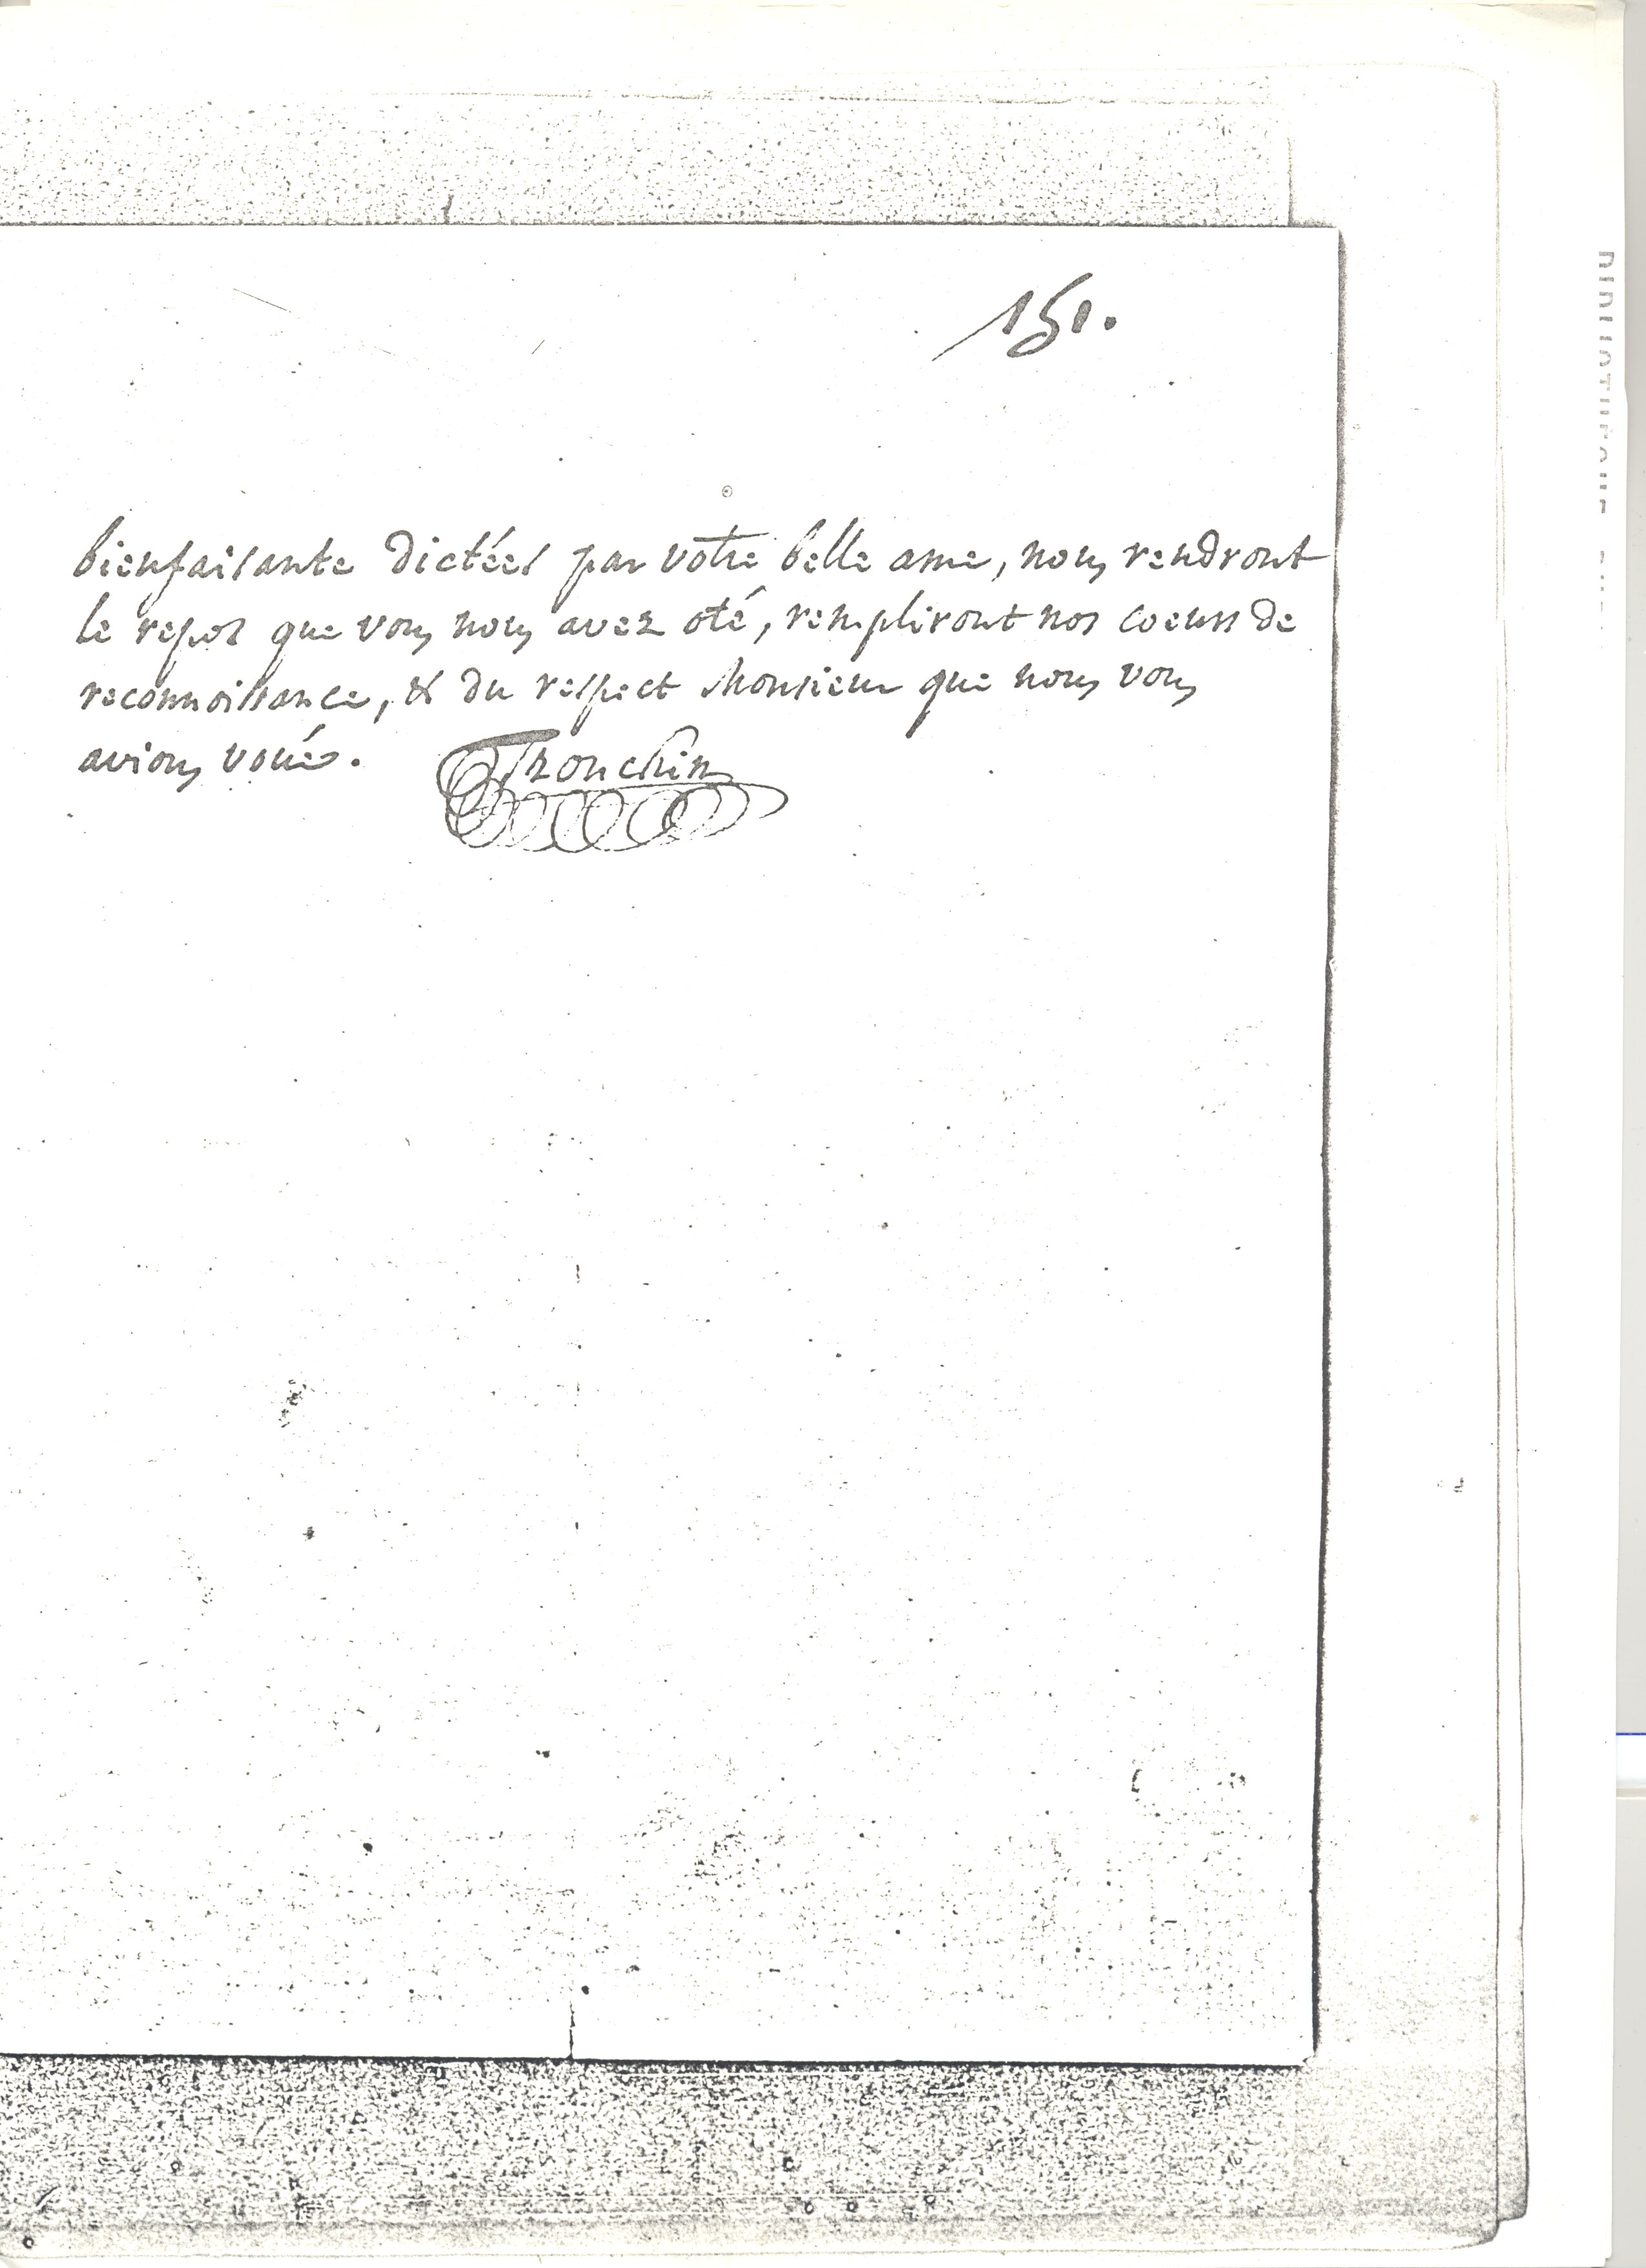 151.
bienfaisante dictées par votre belle ame, nous rendront
le repos que vous nous avez oté, rempliront nos coeurs de
reconnoissance, & du respect Monsieur que nous vous
avions voué.
Tronchin